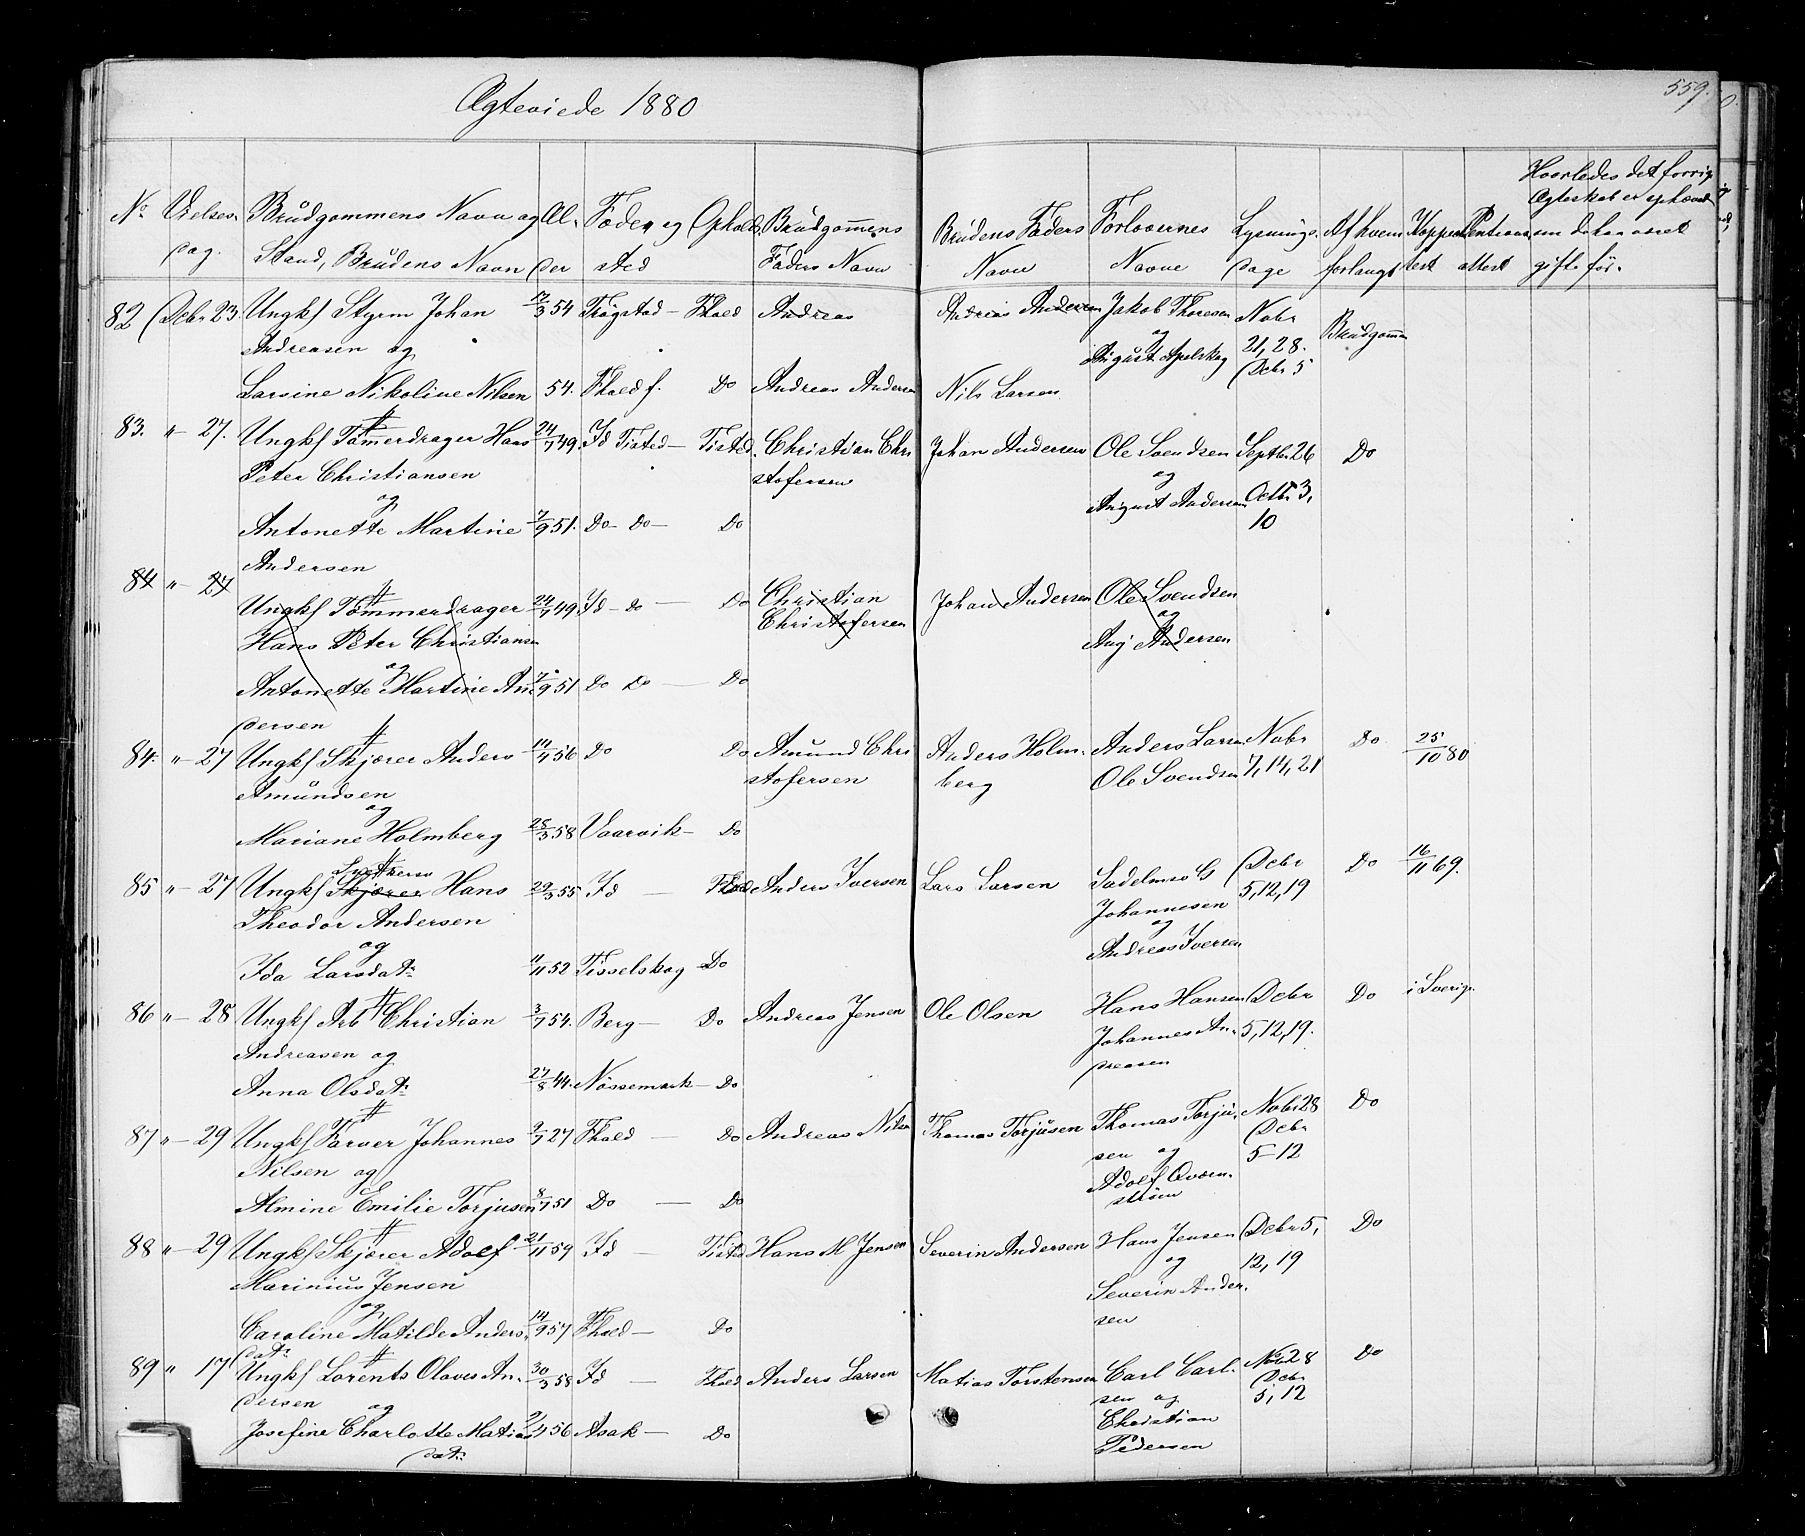 559.
Ægteviede 1880
No Vielses- Brudgommens Navn og Al- Føde og Ophold Brudgommens Brudens Faders Forlovernes Lysnings- Af hvem Koppe- Hvorledes det forrig
dag. Stand, Brudens Navn der sted Faders Navn Navn Navne dage forlangt test attest Ægteskab er ophævet
om de har været
gifte før.
82 Decbr 23. Ungkf Styrm Johan 17/3 54 Trøgstad — Fhald Andreas Andreas Andersen Jakob Thoresen Nobr Brudgomm
Andreasen og og August Apelskog 21, 28.
Larsine Nikoline Nilsen 54. Fhald f. Do Andreas Andersen Nils Larsen Decbr 5
83. " 27. Ungkf Tømerdrager Hans 24/7 49. Id Tisted — Tisted. Christian Chri Johan Andersen Ole Svendsen Septbr 26 Do
Peter Christiansen stofersen og
og August Andersen Octbr 3,
Antonette Martine 7/9 51. Do — Do — Do 10
Andersen
84 " 27
Ungkf Tømmerdrager 24/7 49 Id — do — Do Christian Johan Andersen Ole Svendsen
Hans Peter Christiansen Christofersen og
og Aug Andersen
Antonette Martine An 7/9 51 Do Do — Do
dersen
84. " 27 Ungkf Skjærer Anders 14/4 56 Do Do Amund Chri Anders Holm- Anders Larsen Nobr Do 25/10 80
Amundsen stofersen berg Ole Svendsen 7, 14, 21
og
Mariane Holmberg 28/3 58 Vaarvik — Do
85 " 27 Ungkf Skjærer Hans 29/3 55 Id — Fhald Anders Iversen Lars Larsen Johannesen Decbr Do 16/11 69.
Theodor Andersen og 5, 12, 19
og Andreas Iversen
Ida Larsdatr 11/11 52 Tisselskog Do
86 " 28 Ungkf Arb Christian 3/7 54. Berg — Do Andreas Jensen Ole Olsen Hans Hansen Decbr Do i Sverig
Andreasen og Johannes An- 5, 12, 19.
Anna Olsdatr 27/8 44. Nössemark — Do dreasen
87 " 29 Ungkf Farver Johannes 9/7 27 Fhald — Do Andreas Nilsen Thomas Torjusen Thomas Torju- Nobr 28 Do
Nilsen og sen og Decbr
Almine Emilie Torjusen 8/7 51 Do — Do Adolf Qværn- 5-12
strøm
88 " 29 Ungkf Skjærer Adolf 21/11 59 Id — Tisted Hans M Jensen Severin Andersen Hans Jensen Decbr 5, Do
Marinius Jensen og 12, 19
og Severin Ander-
Caroline Matilde Anders- 14/9 57 Fhald — Do sen
datr
89 " 17 Ungkf Lorents Olaves An- 30/3 58 Id — Fhald Anders Larsen Matias Torstensen Carl Carl- Nobr 28 Do
dersen og sen og Decbr
Josefine Charlotte Matias 56 Asak — Do Christian 5, 12
datr Pedersen